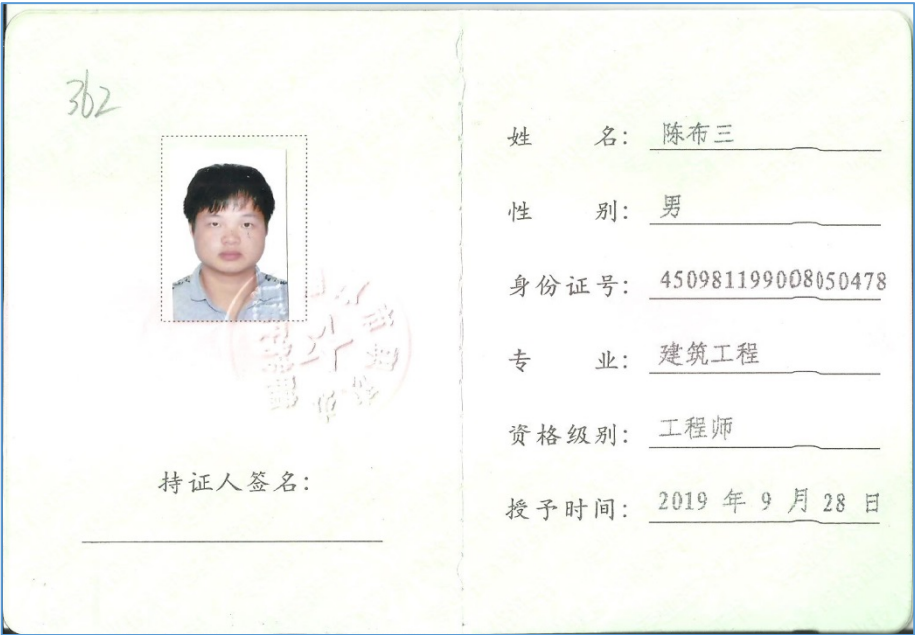 362
持证人签名：
姓 名： 陈布三
性 别： 男
身份证号： 450981199008050478
专 业： 建筑工程
资格级别： 工程师
授予时间： 2019 年 9 月 28 日